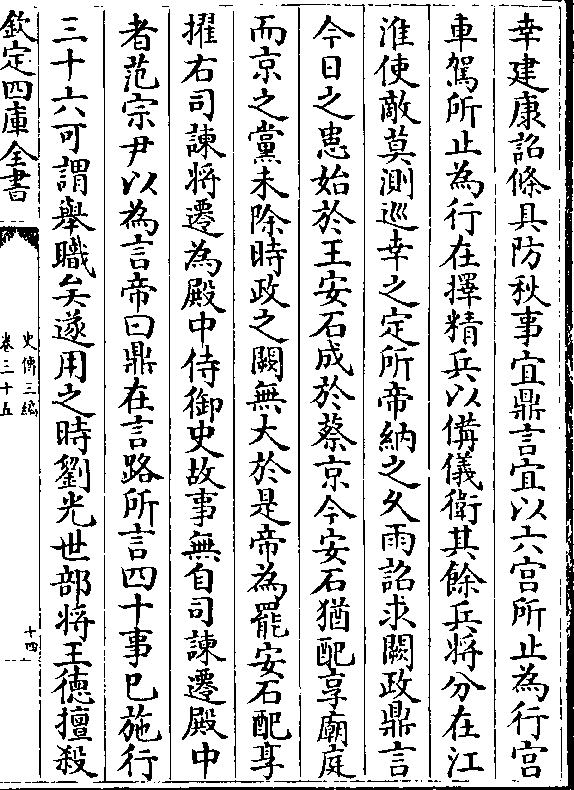 幸建康詔條具防秋事宜鼎言宜以六宮所止為行宮
車駕所止為行在擇精兵以備儀衛其餘兵將分在江
淮使敵莫測巡幸之定所帝納之久雨詔求闕政鼎言
今日之患始於王安石成於蔡京今安石猶配享廟庭
而京之黨未除時政之闕無大於是帝為罷安石配享
擢右司諫將遷為殿中侍御史故事無自司諫遷殿中
者范宗尹以為言帝曰鼎在言路所言四十事已施行
三十六可謂舉職矣遂用之時劉光世部將王德擅殺
欽定四庫全書
史傳三編
卷三十五
十四